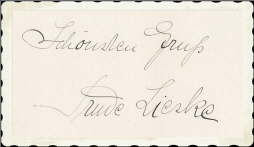 Schönsten Gruß
Trude Lieske